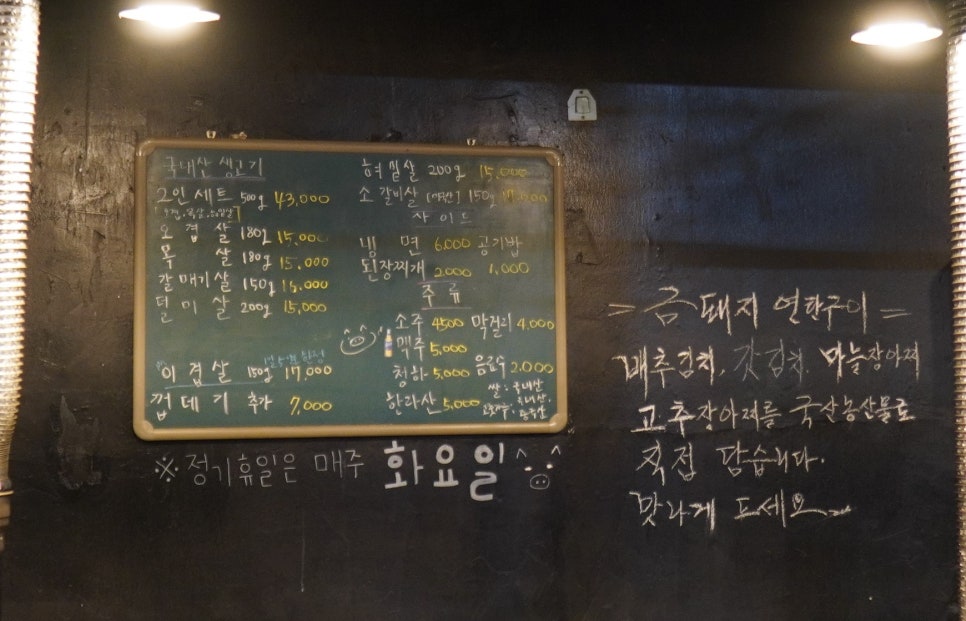 국내산 생고기
2인세트 500g 43,000
오겹살 180g 15,000
목살 180g 15,000
갈매기살 150g 15,000
덜미살 200g 15,000
이겹살 150g 17,000
껍데기 추가 7,000
혀밑살 200g 15,000
소갈비살 150g
사이드
냉면 6,000 공기밥
된장찌개 2,000 1,000
주류
소주 4500 막걸리 4,000
맥주 5,000
청하 5,000 음료수 2,000
한라산 5,000
쌀: 국내산
국내산,
중국산
※정기휴일은 매주 화요일
= 금돼지 연탄구이 =
배추김치, 갓김치, 마늘장아찌
고추장아찌를 국산농산물로
직접 담습니다.
맛나게 드세요~